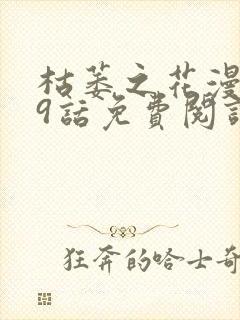 枯萎之花漫
9話免費閱
狂奔的哈士奇